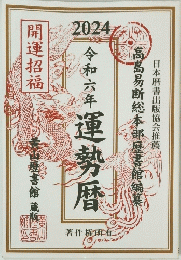 2024
日本暦書出版協会推薦
高島易断総本部暦書館編纂
令和六年
運勢暦
開運招福
著作権所有